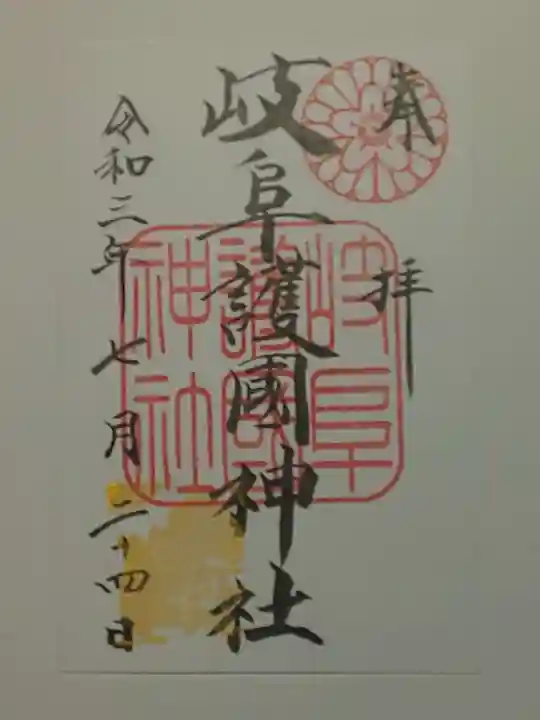 奉拝
岐阜護國神社
岐阜
護國
神社
令和三年七月二十四日